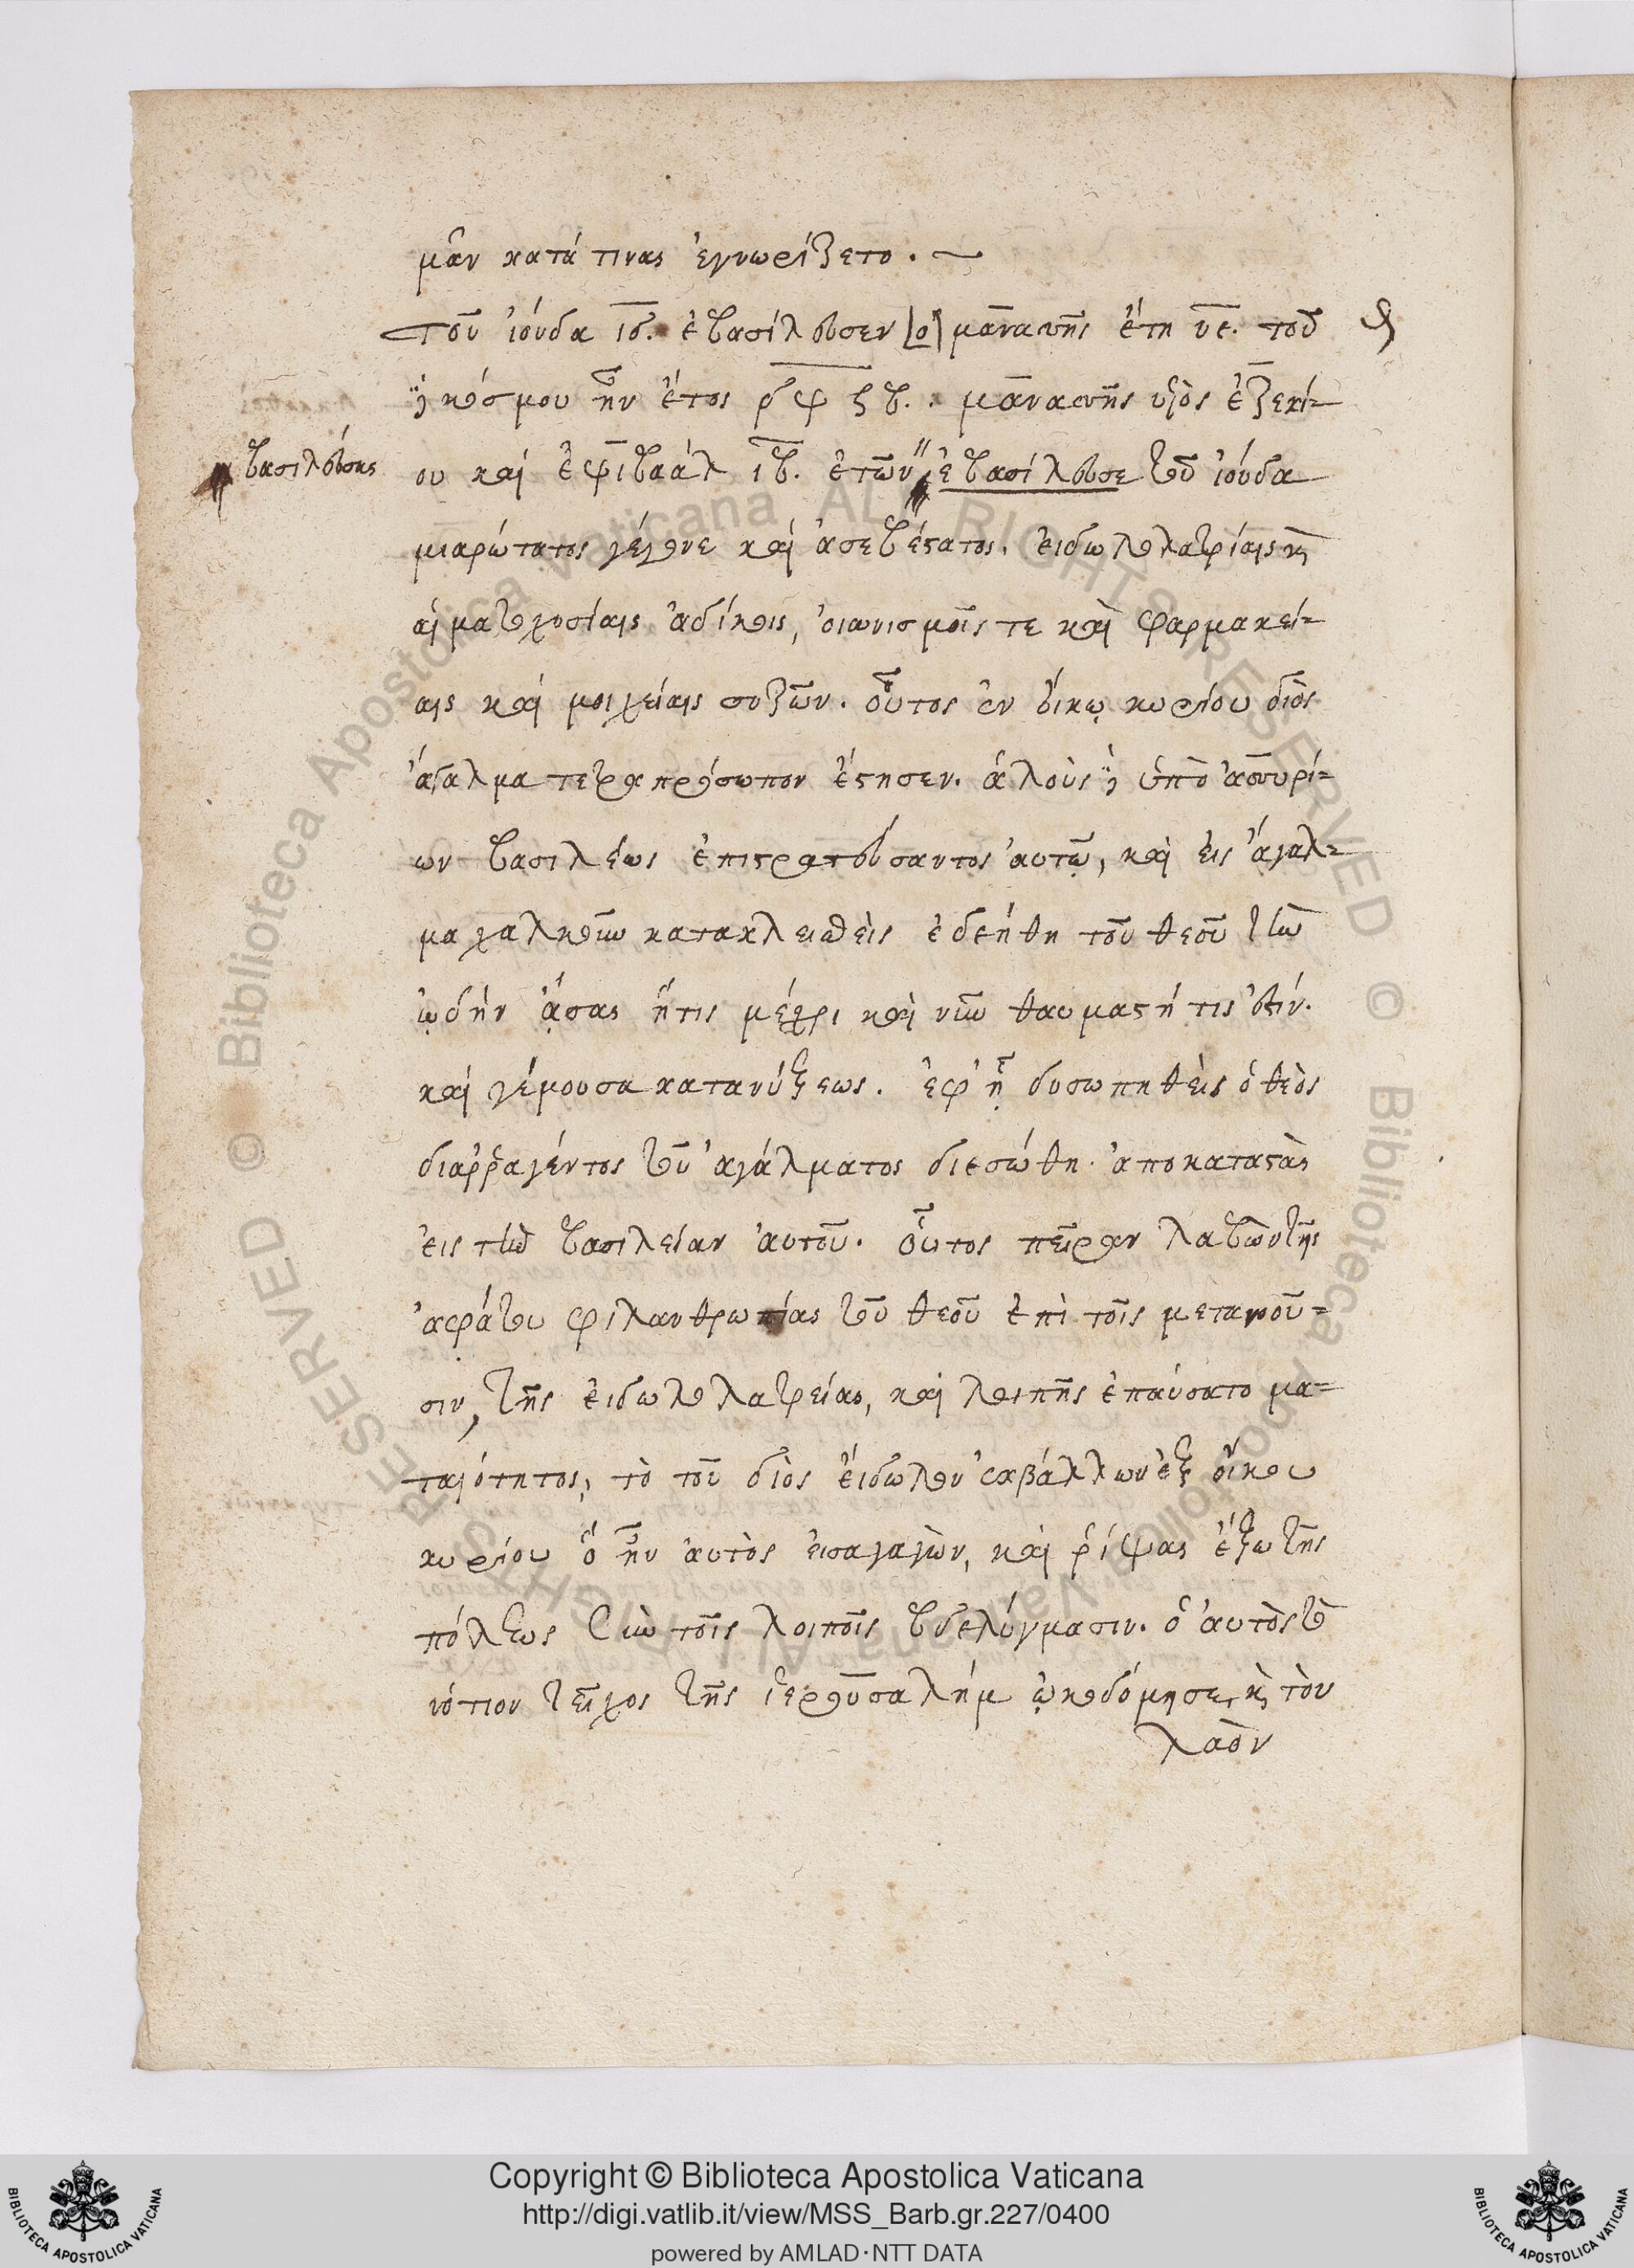 μὰν κατά τινας ἐγνωρίζετο. ~
τοῦ ἰούδα ιδ. ἐβασίλευσεν [ὁ] μανασσῆς ἔτη νε. τοῦ
δὲ κόσμου ἦν ἔτος μανασσῆς υἱὸς ἐζεκί=
βασιλεύσας
ου καὶ ἐψιβαὰλ ιβ. ἐτῶν ἐβασίλευσε τοῦ ἰούδα
μιαρώτατος γέγονε καὶ ἀσεβέστατος. εἰδωλολατρίαις κ
αἱματοχυσίαις ἀδίκοις, οἰωνισμοῖς τε καὶ φαρμακεί=
αις καὶ μοιχείαις συζῶν. οὗτος ἐν οἴκῳ κυρίου διὸς
ἄγαλμα τετραπρόσωπον ἔστησεν. ἁλοὺς δὲ ὑπὸ ἀσσυρί=
ων βασιλέως ἐπιστρατεύσαντος αὐτῷ, καὶ εἰς ἄγαλ=
μα χαλκοῦν κατακλεισθεὶς ἐδεήθη τοῦ θεοῦ τὴν
ᾠδήν ᾄσας ἥτις μέχρι καὶ νῦν θαυμαστή τις ἐστίν.
καὶ γέμουσα κατανύξεως. ἐφ' ᾗ δυσωπηθεὶς ὁ θεὸς
διαῤῥαγέντος τοῦ ἀγάλματος διεσώθη. ἀποκαταστὰς
εἰς τὴν βασιλείαν αὐτοῦ. οὗτος πεῖραν λαβὼν τῆς
ἀφάτου φιλανθρωπίας τοῦ θεοῦ ἐπὶ τοῖς μετανοοῦ=
σιν, τῆς εἰδωλολατρείας, καὶ λοιπῆς ἐπαύσατο μα=
ταιότητος, τὸ τοῦ διὸς εἴδωλον ἐκβάλλων ἐξ οἴκου
κυρίου ὃ ἦν αὐτὸς εἰσαγαγὼν, καὶ ῥίψας ἔξω τῆς
πόλεως σὺν τοῖς λοιποῖς βδελύγμασιν. ὁ αὐτὸς τὸ
νότιον τεῖχος τῆς ἱερουσαλήμ ᾠκοδόμησε, κ τὸν
λαὸν
Copyright © Biblioteca Apostolica Vaticana
http://digi.vatlib.it/view/MSS_Barb.gr.227/0400
powered by AMLAD·NTT DATA